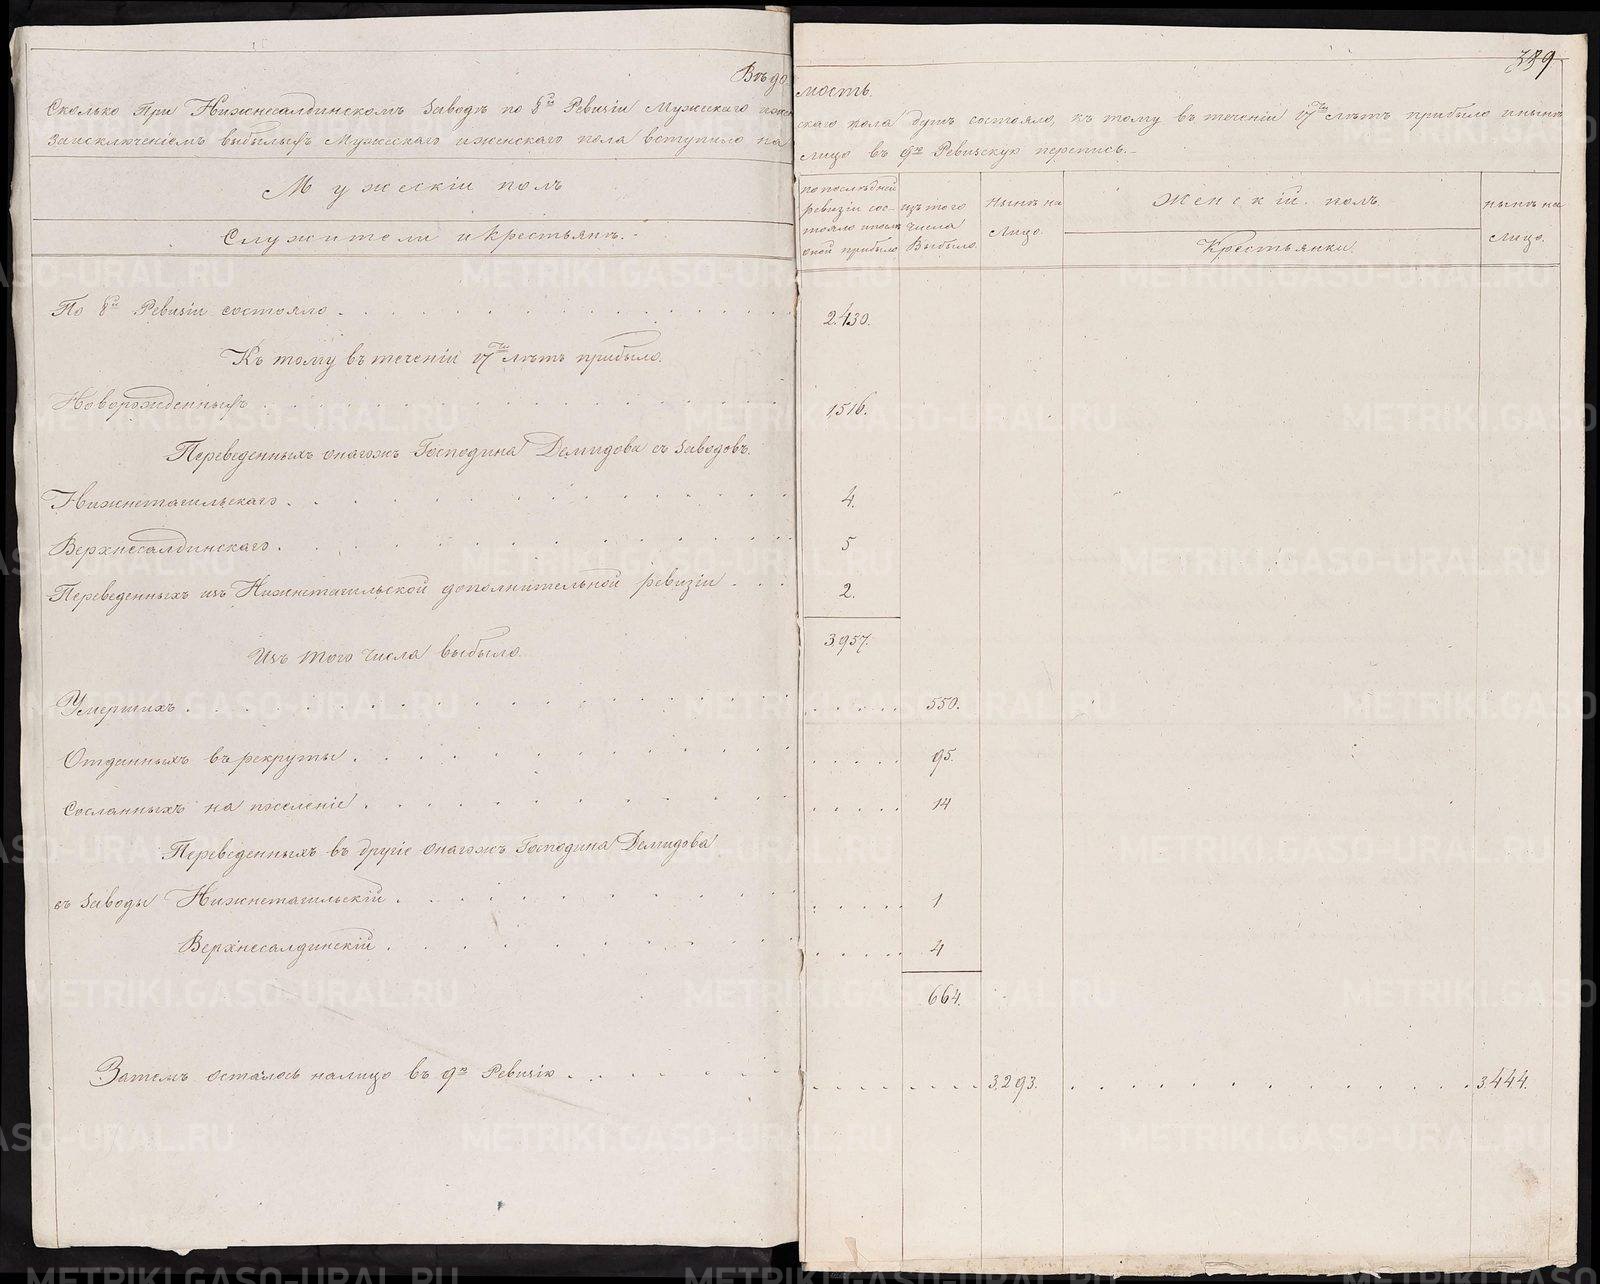 389
Вѣдомость.
Сколько При Нижнесалдинскомъ Заводѣ по 8й Ревизіи Мужескаго и женскаго пола душъ состояло, къ тому въ теченіи 17ти лѣтъ прибыло и нынѣ
За исключеніемъ выбылыхъ Мужескаго и женскаго пола вступило на лицо въ 9ю Ревизскую перепись.
Мужескій полъ
Служители и крестьянъ.
по послѣдней ревизіи состояло и после оной прибыло
изъ того числа Выбыло.
Нынѣ на Лицо.
Женскій полъ
Крестьянки
нынѣ на лицо.
По 8й Ревизіи состояло 2430.
Къ тому въ теченіи 17ти лѣтъ прибыло.
Новорожденныхъ 1516.
Переведенныхъ онагожъ Господина Демидова съ Заводовъ.
Нижнетагильскаго 4.
Верхнесалдинскаго 5
Переведенныхъ изъ Нижнетагильской дополнительной ревизіи 2.
3957.
Изъ того числа выбыло
Умершихъ 550.
Отданныхъ въ рекруты 95.
Сосланныхъ на поселеніе 14
Переведенныхъ въ другіе онагожъ Господина Демидова
въ Заводы Нижнетагильскій 1
Верхнесалдинскій 4
664.
Затемъ осталось налицо въ 9ю Ревизію 3293. 3444.
METRIKI.GASO-URAL.RU